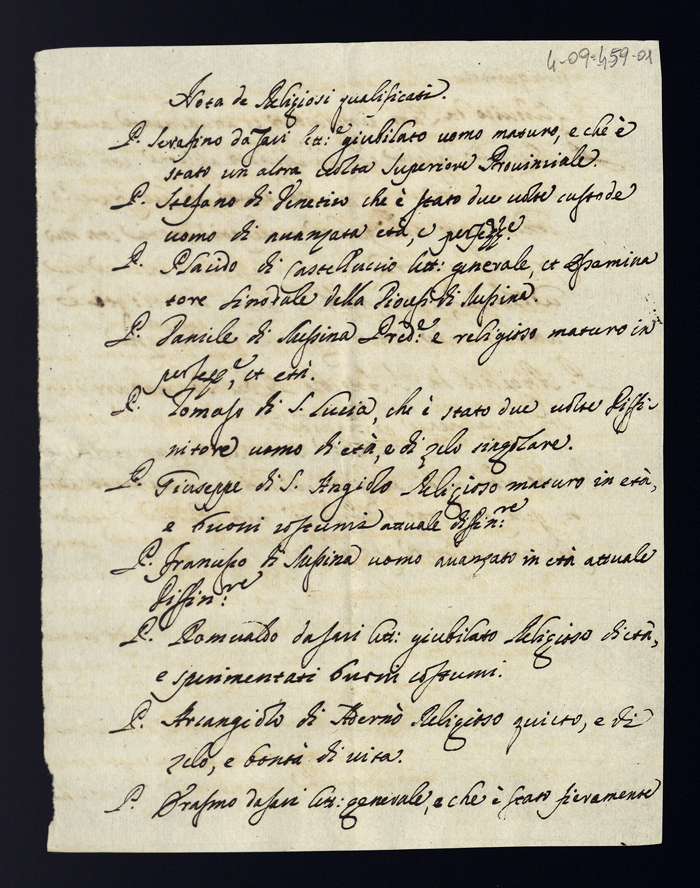 4-09-459-01
Nota de Religiosi qualificati.
P. Serafino da Jaci lett:e giubilato uomo maturo, e che è
stato un altra volta Superiore Provinziale.
P. Stefano di Venetico che è stato due volte custode
uomo di avanzata età, e
P. Placido di Castelluccio lett: generale, et Esamina
tore Sinodale della Diocesi di Messina.
P. Daniele di Messina Pred.e e religioso maturo in
et età.
P. Tomaso di S. Lucia, che è stato due volte diffi-
nitore uomo di età, e di zelo singolare.
P. Giuseppe di S. Angiolo Religioso maturo in età,
e buoni costumi attuale diffin:re
P. Francesco di Messina uomo avanzato in età attuale
diffin:re
P. Romualdo da Jaci lett: giubilato Religioso di età,
e sperimentati buoni costumi.
P. Arcangiolo di Adernò Religioso quieto, e di
zelo, e bontà di vita.
P. Erasmo da Jaci lett: generale, e che è stato fieramente